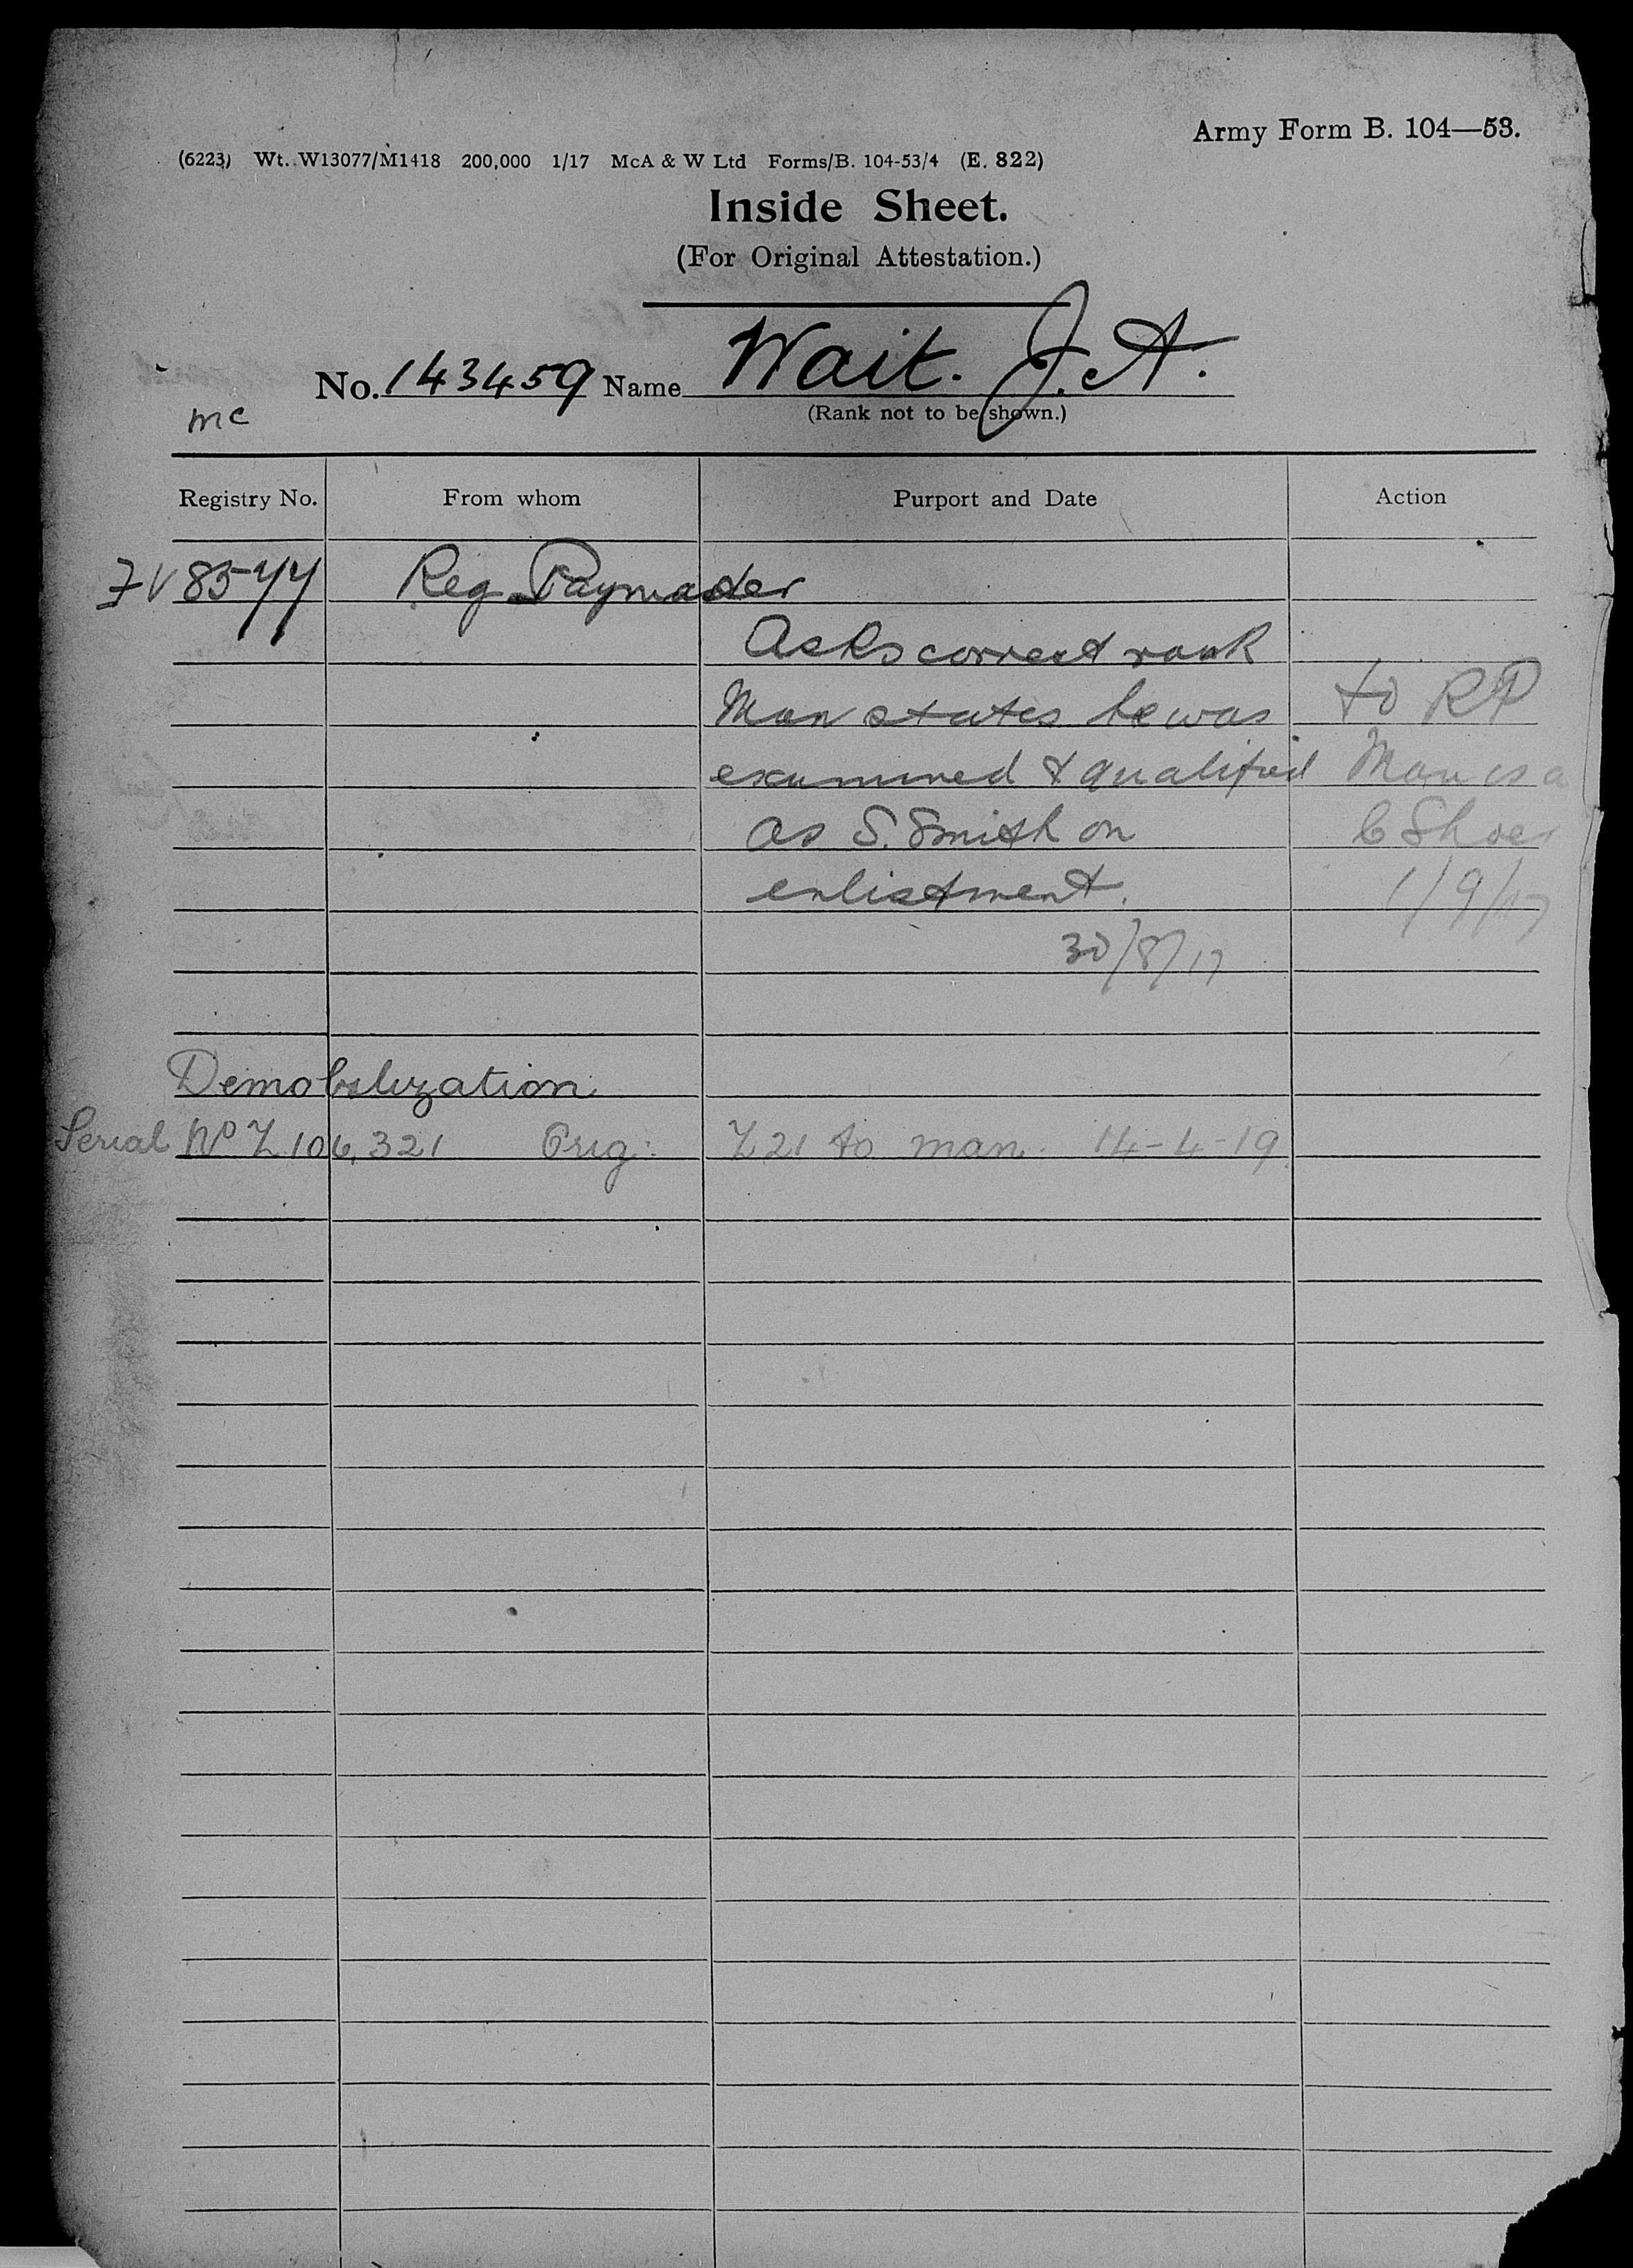 Army Form B. 104—53.
(6223) Wt. W13077/M1418 200,000 1/17 McA & W Ltd Forms/B. 104-53/4 (E. 822)
Inside Sheet.
(For Original Attestation.)
No. 143459 Name Wait. J. A.
(Rank not to be shown.)
mc
Registry No. From whom Purport and Date Action
8544 Reg Paymaster
Asks correct rank
Man states he was to RP
examined & qualified Man is a
as S. Smith on C Shoer
enlistment. 1/9/17
30/8/17
Demobilization
Serial No Z 106,321 Orig: Z 21 to man. 14-4-19.